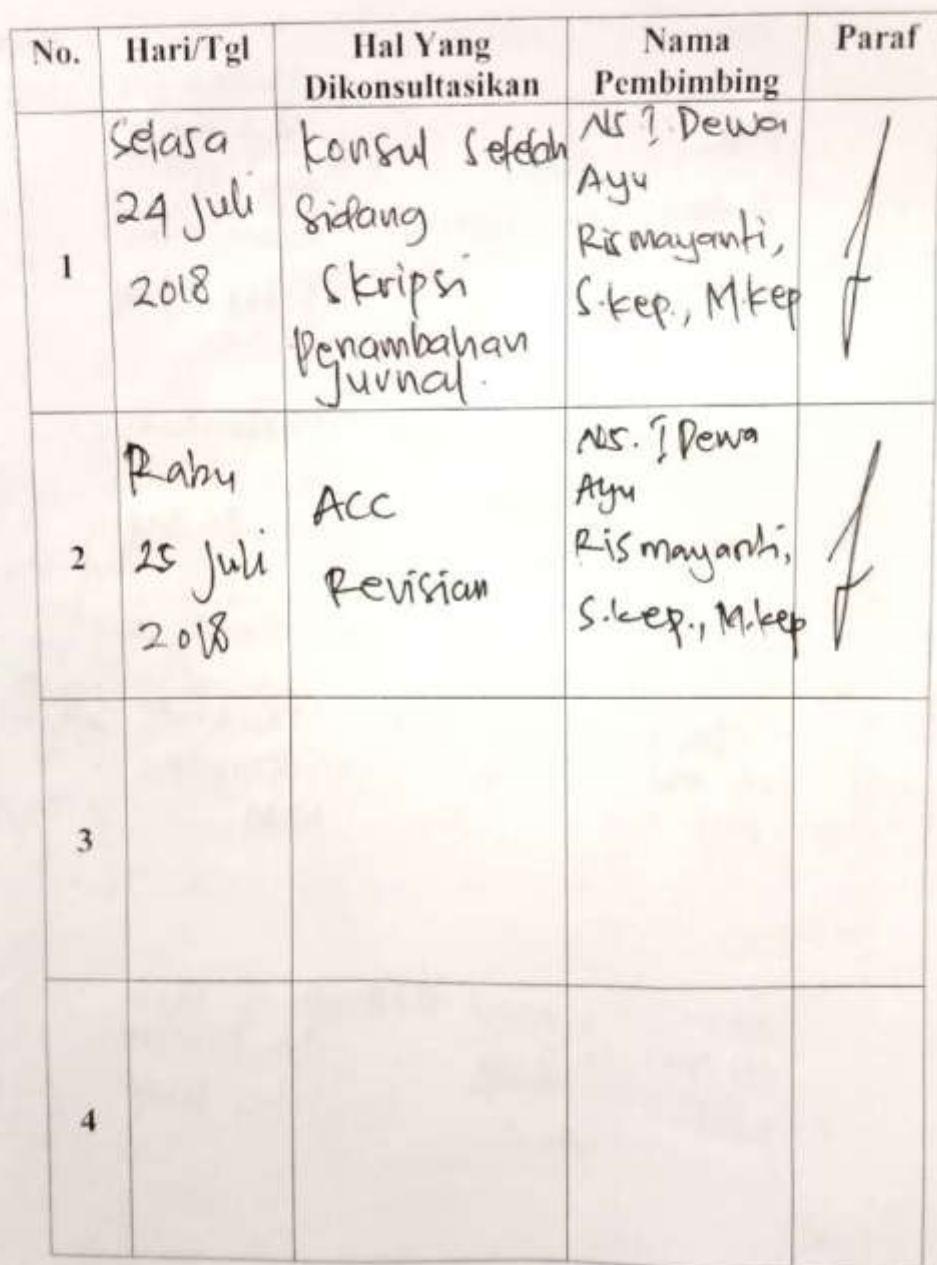 No. Hari/Tgl Hal Yang Dikonsultasikan Nama Pembimbing Paraf
1
Selasa
24 Juli
2018
Konsul Setelah
Sidang
Skripsi
Penambahan
Jurnal.
NS I Dewa
Ayu
Rismayanti,
S.kep., M.kep
2
Rabu
25 Juli
2018
ACC
Revisian
NS. I Dewa
Ayu
Rismayanti,
S.kep., M.kep
3
4